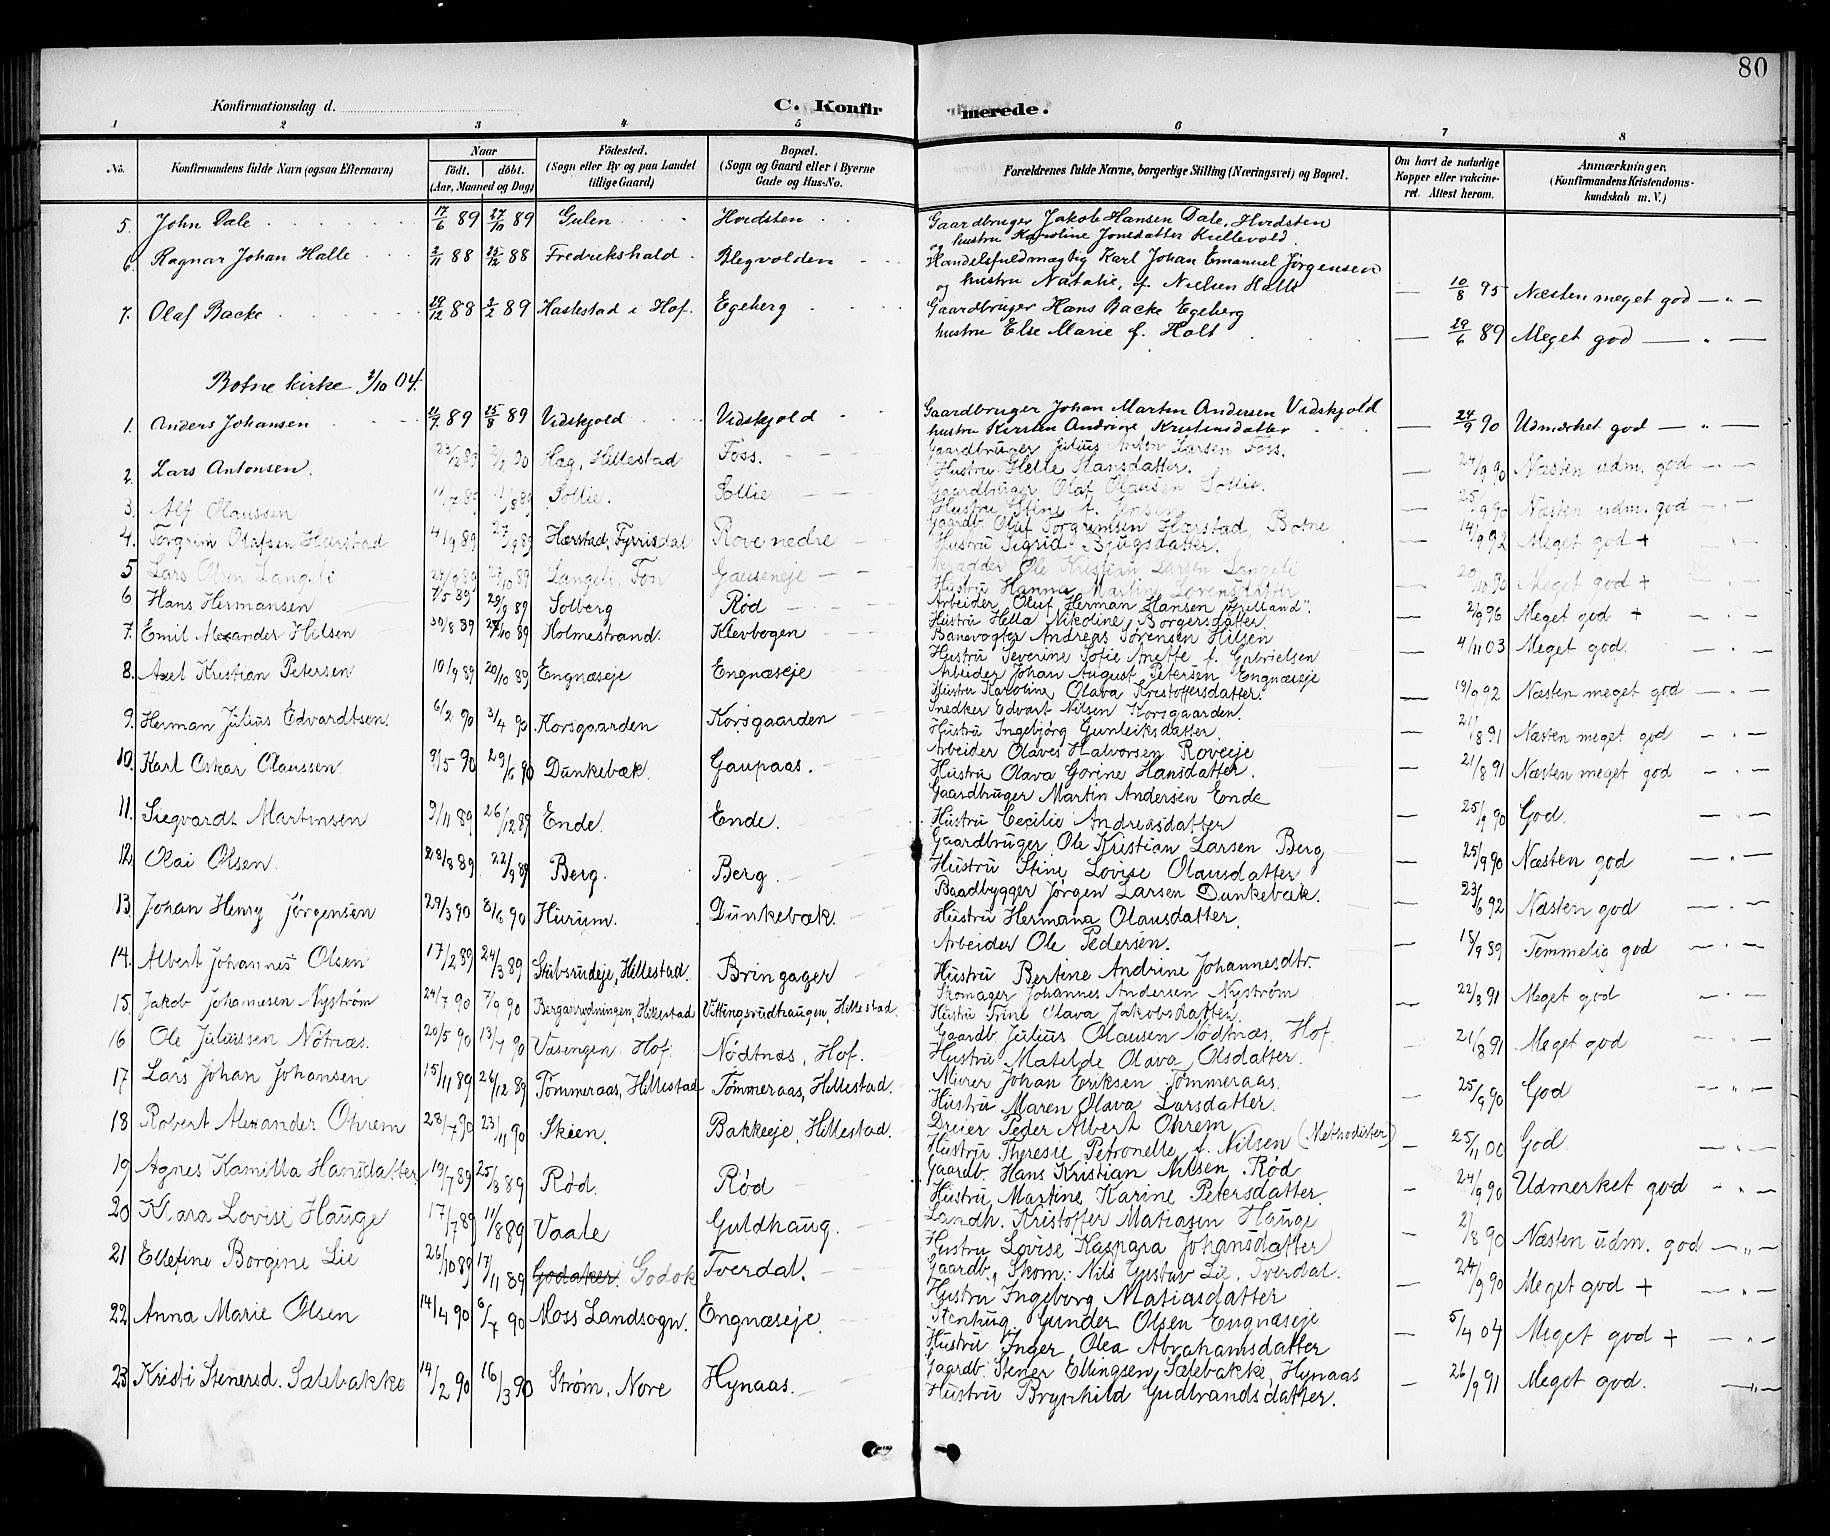 80
Konfirmationsdag d.
C. Konfirmerede.
1 2 3 4 5 6 7 8
No. Konfirmandens fulde Navn (ogsaa Efternavn) Naar födt. döbt. (Aar, Maaned og Dag) Födested. (Sogn eller By og paa Landet tillige Gaard) Bopæl. (Sogn og Gaard eller i Byerne Gade og Hus-No. Forældrenes fulde Navne, borgerlige Stilling (Næringsvei) og Bopæl. Om havt de naturlige Kopper eller vakcineret. Attest herom. Anmærkninger, (Konfirmandens Kristendomskundskab m. V.)
5. John Dale 17/6 89 27/10 89 Gulen Hvidsten Gaardbruger Jakob Hansen Dale, Hvidsten
og hustru Karoline Jonsdatter Killevold.
6. Ragnar Johan Halle 2/11 88 25/12 88 Fredrikshald Blegvolden Handelsfuldmægtig Karl Johan Emanuel Jörgensen
og hustru Natalie, f. Nielsen Halle — 10/8 95 Næsten meget god — „ —
7. Olaf Backe 29/12 88 2/2 89 Haslestad i Hof. Egeberg Gaardbruger Hans Backe Egeberg
hustru Else Marie f. Holt — 29/6 89 Meget god — „ —
Botne kirke 2/10 04.
1. Anders Johansen 11/7 89 25/8 89 Vidskjold Vidskjold Gaardbruger Johan Martin Andersen Vidskjold
hustru Kirsten Andrine Kristensdatter — 24/9 90 Udmærket god — „ —
2. Lars Antonsen. 23/12 89 2/2 90 Hag, Hillestad Foss. Gaardbruger Julius Anton Larsen Foss.
Hustru Helle Hansdatter. — 24/9 90 Næsten udm. god — „ —
3. Alf Olaussen 11/7 89 11/8 89 Sollie. Sollie Gaardbruger Olaf Olausen Sollie.
Hustru Stine f. Jensen — 25/9 90 Næsten udm. god — „ —
4. Torgrim Olafsen Hærstad 4/9 89 27/9 89 Hærstad, Fyrrisdal Rove nedre Gaardb. Olaf Torgrimsen Hærstad, Botne
Hustru Sigrid Bjugsdatter. — 14/9 92 Meget god +
5 Lars Olsen Langeli 29/9 89 27/10 89 Langeli, Fon Gauseneje Ole Kristian Larsen Langeli
Hustru Hanna Martine Lorensdatter — 20/10 90 Meget god + — „ —
6 Hans Hermansen 7/5 89 29/9 89 Solberg Rød Arbeider Oluf Herman Hansen „Grelland".
Hustru Hella Nikoline Borgersdatter. — 2/9 96 Meget god + — „ —
7. Emil Alexander Hilsen 30/8 89 27/10 89 Holmestrand. Klevbogen Banevogter Andreas Sørensen Hilsen
Hustru Severine Sofie Anette f. Gabrielsen — 4/11 03 Meget god. — „ —
8. Axel Kristian Petersen 10/9 89 20/10 89 Engnæseje Engnæseje Arbeider Johan August Petersen Engnæseje
Hustru Karoline Olava Kristoffersdatter. — 19/9 92 Næsten meget god — „ —
9. Herman Julius Edvardtsen. 6/2 90 3/4 90 Korsgaarden Korsgaarden Snedker Edvart Nilsen Korsgaarden.
Hustru Ingebjørg Gunleiksdatter. — 21/8 91 Næsten meget god — „ —
10. Karl Oskar Olaussen 9/5 90 29/6 90 Dunkebæk. Gaupaas. Arbeider Olaves Halvorsen Roveeje
Hustru Olava Gorine Hansdatter. — 21/8 91 Næsten meget god — „ —
11. Siegvardt Martinsen 9/11 89 26/12 89 Ende. Ende. Gaardbruger Martin Andersen Ende
Hustru Cecilie Andreasdatter — 25/9 90 God. — „ —
12. Olai Olsen. 28/8 89 22/9 89 Berg. Berg. Gaardbruger Ole Kristian Larsen Berg
Hustru Stine Lovise Olausdatter — 25/9 90 Næsten god — „ —
13. Johan Henry Jørgensen 29/3 90 8/6 90 Hurum. Dunkebæk. Baadbygger Jørgen Larsen Dunkebæk.
Hustru Hermana Olausdatter. — 23/6 92 Næsten god — „ —
14. Albert Johannes Olsen 17/2 89 24/3 89 Stubsrudeje, Hillestad. Bringager Arbeider Ole Pedersen.
Hustru Bertine Andrine Johannesdtr. — 18/9 89 Temmelig god — „ —
15. Jakob Johannesen Nyström 24/7 90 7/9 90 Berganrydningen, Hillestad Vittingsrudhaugen, Hillestad. Skomager Johannes Andersen Nyström
Hustru Trine Olava Jakobsdatter. — 22/8 91 Meget god — „ —
16 Ole Juliussen Nötnæs. 20/5 90 13/7 90 Vasengen Hof. Nødtnæs, Hof. Gaardb. Julius Olausen Nødtnæs, Hof.
Hustru Matilde Olava Olsdatter. — 21/8 91 Meget god — „ —
17 Lars Johan Johansen 15/11 89 26/12 89 Tømmeraas, Hillestad Tømmeraas, Hillestad. Murer Johan Eriksen Tømmeraas.
Hustru Maren Olava Larsdatter. — 25/9 90 God — „ —
18 Robert Alexander Ohrem 28/7 90 23/11 90 Skien. Bakkeeje, Hillestad. Dreier Peder Albert Ohrem
Hustru Theresie Petronelle f. Nilsen (Methodister) — 25/11 00 God. — „ —
19 Agnes Kamilla Hansdatter 19/7 89 25/8 89 Rød. Rød Gaardb. Hans Kristian Nilsen Rød
Hustru Martine Karine Petersdatter. — 24/9 90 Udmerket god — „ —
20 Klara Lovise Hauge 17/7 89 11/8 89 Vaale Guldhaug. Landh. Kristoffer Matiasen Hauge
Hustru Lovise Kaspara Johansdatter — 2/8 90 Næsten udm. god — „ —
21 Ellefine Borgine Lie 26/10 89 17/11 89 Godaker. Godok Tverdal. Gaardb., Skom. Nils Gustav Lie, Tverdal.
Hustru Ingeborg Matiasdatter — 24/9 90 Meget god + — „ —
22 Anna Marie Olsen 14/4 90 6/7 90 Moss Landsogn. Engnæseje. Stenhug. Gunder Olsen Engnæseje
Hustru Inger Olea Abrahamsdatter — 5/4 04 Meget god + — „ —
23 Kristi Stenersd. Sælebakke 14/2 90 16/3 90 Strøm, Nore Hynaas. Gaardb. Stener Ellingsen Sælebakke, Hynaas
Hustru Brynhild Gudbrandsdatter. — 26/9 91 Meget god. — „ —